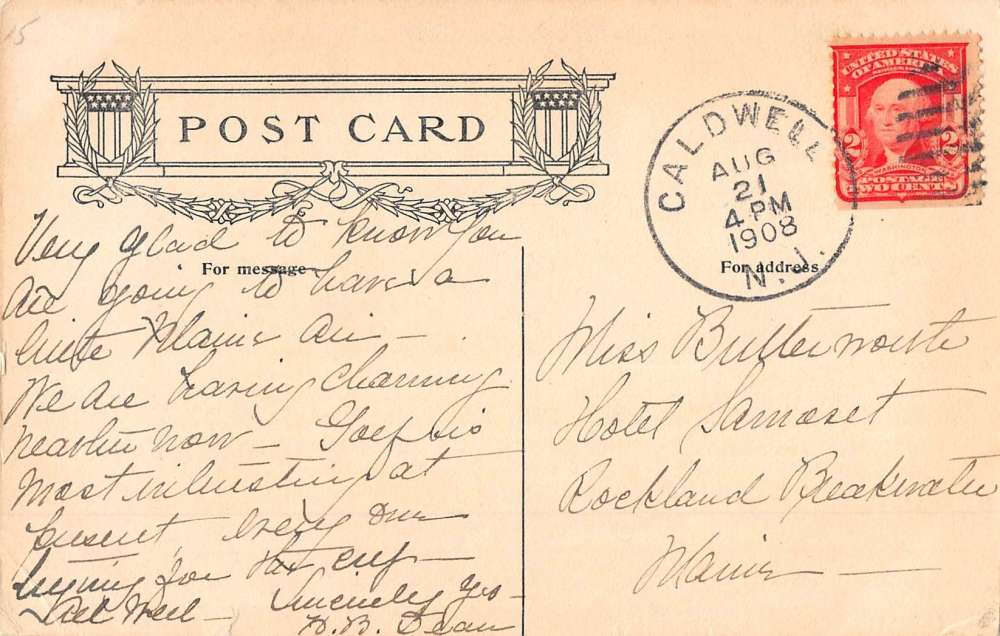 15
POST CARD
UNITED STATES
OF AMERICA
2 2
WASHINGTON
POSTAGE
TWO CENTS
CALDWELL
AUG
21
4 PM
1908
N.J.
For message
For address
Very glad to know you
are going to have a
little Maine air —
We are having charming
weather now — Golf is
most interesting at
present, every one
trying for the cup —
All well — Sincerely Yrs —
H. B. Dean
Miss Butterworth
Hotel Samoset
Rockland Breakwater
Maine —